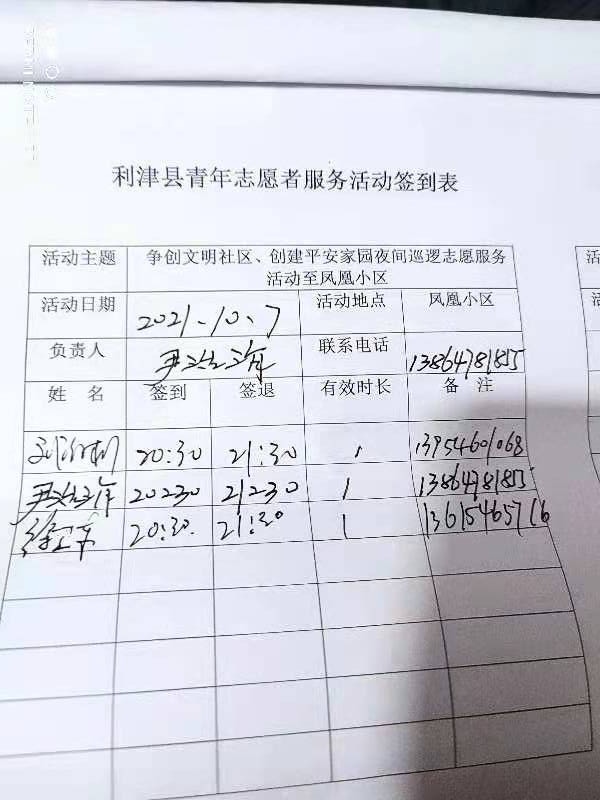 利津县青年志愿者服务活动签到表
活动主题 争创文明社区、创建平安家园夜间巡逻志愿服务
活动至凤凰小区
活动日期 2021.10.7 活动地点 凤凰小区
负责人 联系电话 13864781855
姓 名 签到 签退 有效时长 备 注
20:30 21:30 1 13954601068
20230 21230 1 13864781855
20:30. 21:30 1 13615465716